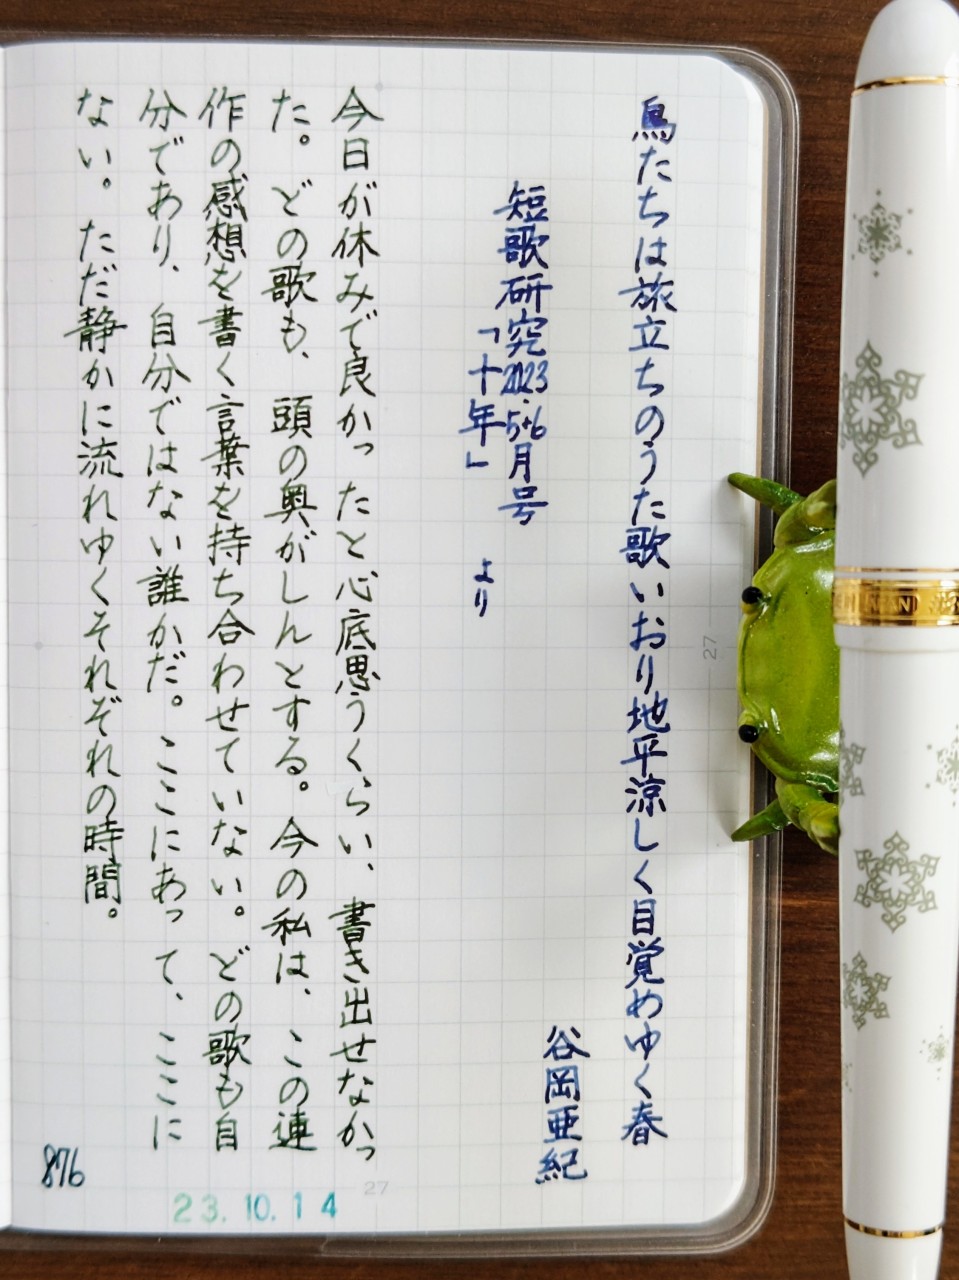 鳥たちは旅立ちのうた歌いおり地平涼しく目覚めゆく春
谷岡亜紀
短歌研究2023.5+6月号
「十年」 より
今日が休みで良かったと心底思うくらい、書き出せなかっ
た。どの歌も、頭の奥がしんとする。今の私は、この連
作の感想を書く言葉を持ち合わせていない。どの歌も自
分であり、自分ではない誰かだ。ここにあって、ここに
ない。ただ静かに流れゆくそれぞれの時間。
876
23.10.14
27
27